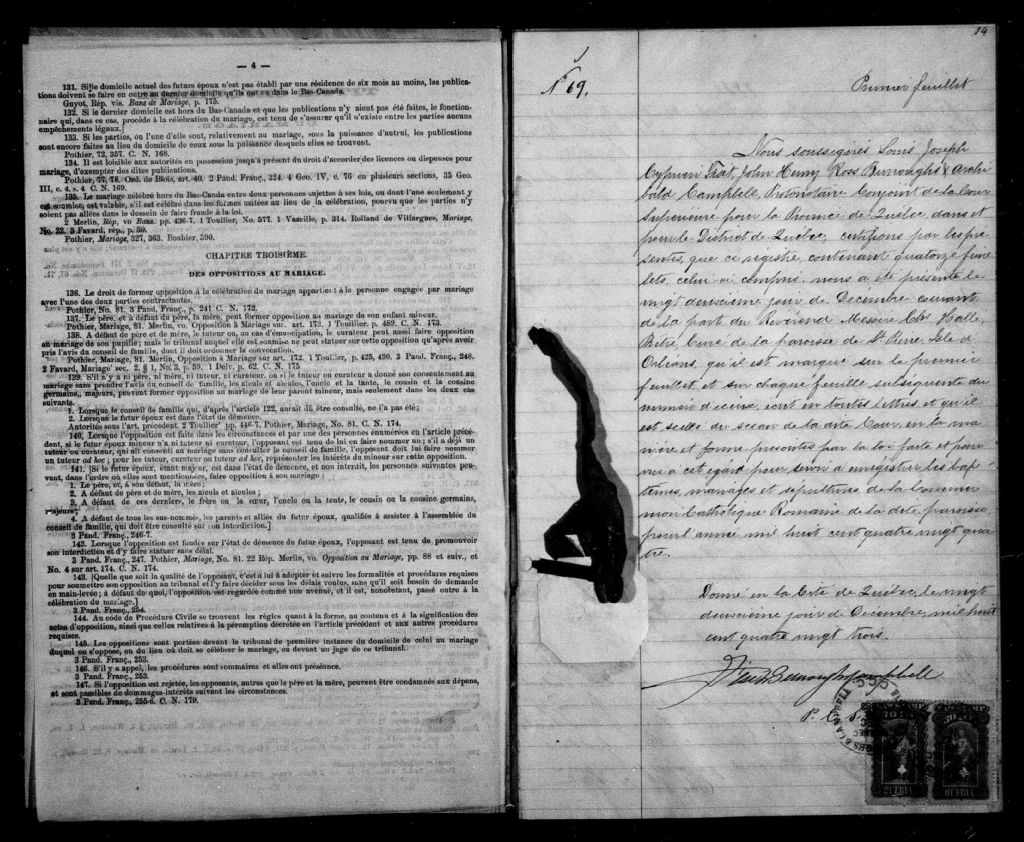 — 4 —
131. Si le domicile actuel des futurs époux n'est pas établi par une résidence de six mois au moins, les publica-
tions doivent se faire en outre au dernier domicile qu'ils ont eu dans le Bas-Canada.
Guyot, Rép. vis. Bans de Mariage, p. 175.
132. Si le dernier domicile est hors du Bas-Canada et que les publications n'y aient pas été faites, le fonction-
naire qui, dans ce cas, procède à la célébration du mariage, est tenu de s'assurer qu'il n'existe entre les parties aucuns
empêchements légaux.]
133. Si les parties, ou l'une d'elles sont, relativement au mariage, sous la puissance d'autrui, les publications
sont encore faites au lieu du domicile de ceux sous la puissance desquels elles se trouvent.
Pothier, 72, 357. C. N. 168.
134. Il est loisible aux autorités en possession jusqu'à présent du droit d'accorder des licences ou dispenses pour
mariage, d'exempter des dites publications.
Pothier, 77, 78. Ord. de Blois, art. 40. 2 Pand. Franç., 324. 4 Geo. IV, c. 76 en plusieurs sections, 35 Geo.
III, c. 4. s. 4 C. N. 169.
135. Le mariage célébré hors du Bas-Canada entre deux personnes sujettes à ses lois, ou dont une seulement y
est soumise, est valable, s'il est célébré dans les formes usitées au lieu de la célébration, pourvu que les parties n'y
soient pas allées dans le dessein de faire fraude à la loi.
2 Merlin, Rép, vo Bans. pp. 436-7. 1 Toullier, No. 577. 1 Vazeille, p. 314. Rolland de Villargues, Mariage,
No. 22. 3 Favard, rép., p. 30.
Pothier, Mariage, 327, 363. Bouhier, 390.
CHAPITRE TROISIÈME.
DES OPPOSITIONS AU MARIAGE.
136. Le droit de former opposition à la célébration du mariage appartient à la personne engagée par mariage
avec l'une des deux parties contractantes.
Pothier, No. 81. 3 Pand. Franç., p. 241 C. N. 172.
137. Le père, et à défaut du père, la mère, peut former opposition au mariage de son enfant mineur.
Pothier, Mariage, 81. Merlin, vo. Opposition à Mariage sur. art. 173. 1 Touillier. p. 489. C. N. 173.
138. A défaut de père et de mère, le tuteur ou, au cas d'émancipation, le curateur peut aussi faire opposition
au mariage de son pupille; mais le tribunal auquel elle est soumise ne peut statuer sur cette opposition qu'après avoir
pris l'avis du conseil de famille, dont il doit ordonner la convocation.
Pothier, Mariage, 81. Merlin, Opposition à Mariage sur art. 172. 1 Toullier, p. 425, 490. 3 Pand. Franç., 248.
2 Favard, Mariage sec. 2. § 1, No. 3, p. 59. 1 Delv. p. 62. C. N. 175
139. S'il n'y a ni père, ni mère, ni tuteur, ni curateur, ou si le tuteur ou curateur a donné son consentement au
mariage sans prendre l'avis du conseil de famille, les aïeuls et aïeules, l'oncle et la tante, le cousin et la cousine
germains, majeurs, peuvent former opposition au mariage de leur parent mineur, mais seulement dans les deux cas
suivants.
1. Lorsque le conseil de famille qui, d'après l'article 122, aurait dû être consulté, ne l'a pas été;
2. Lorsque le futur époux est dans l'état de démence.
Autorités sous l'art. précédent. 2 Toullier pp. 446-7. Pothier, Mariage, No. 81. C. N. 174.
140. Lorsque l'opposition est faite dans les circonstances et par une des personnes énumérées en l'article précé-
dent, si le futur époux mineur n'a ni tuteur ni curateur, l'opposant est tenu de lui en faire nommer un; s'il a déjà un
tuteur ou curateur, qui ait consenti au mariage sans consulter le conseil de famille, l'opposant doit lui faire nommer
un tuteur ad hoc; pour les tuteur ou curateur ou tuteur ad hoc, représenter les intérêts du mineur sur cette opposition.
141. [Si le futur époux, étant majeur, est dans l'état de démence, et non interdit, les personnes suivantes peu-
vent, dans l'ordre où elles sont mentionnées, faire opposition à son mariage:
1. Le père, et, à son défaut, la mère;
2. A défaut de père et de mère, les aïeuls et aïeules;
3. A défaut de ces derniers, le frère ou la sœur, l'oncle ou la tante, le cousin ou la cousine germains,
majeurs;
4. A défaut de tous les sus-nommés, les parents et alliés du futur époux, qualifiés à assister à l'assemblée du
conseil de famille, qui doit être consulté sur son interdiction.]
3 Pand. Franç., 246-7.
142. Lorsque l'opposition est fondée sur l'état de démence du futur époux, l'opposant est tenu de promouvoir
son interdiction et d'y faire statuer sans délai.
3 Pand. Franç., 247. Pothier, Mariage, No. 81. 22 Rép. Merlin, vo. Opposition au Mariage, pp. 88 et suiv., et
No. 4 sur art. 174. C. N. 174.
143. [Quelle que soit la qualité de l'opposant, c'est à lui à adopter et suivre les formalités et procédures requises
pour soumettre son opposition au tribunal et l'y faire décider sous les délais voulus, sans qu'il soit besoin de demande
en main-levée; à défaut de quoi, l'opposition est regardée comme non avenue, et il est, nonobstant, passé outre à la
célébration du mariage.]
3 Pand. Franç., 254.
144. Au code de Procédure Civile se trouvent les règles quant à la forme, au contenu et à la signification des
actes d'opposition, ainsi que celles relatives à la péremption décrétée en l'article précédent et aux autres procédures
requises.
145. Les oppositions sont portées devant le tribunal de première instance du domicile de celui au mariage
duquel on s'oppose, ou du lieu où doit se célébrer le mariage, ou devant un juge de ce tribunal.
3 Pand. Franç., 253.
146. S'il y a appel, les procédures sont sommaires et elles ont préséance.
3 Pand. Franç., 253.
147. Si l'opposition est rejetée, les opposants, autres que le père et la mère, peuvent être condamnés aux dépens,
et sont passibles de dommages-intérêts suivant les circonstances.
3 Pand. Franç., 255-6. C. N. 179.
No 69.
Premier feuillet
Nous soussignés Louis Joseph
Cyprien Fiset, John Henry Ross Burroughs & Archi
bald Campbell, Protonotaire Conjoint de la Cour
Supérieure pour la Province de Québec, dans et
pour le District de Québec, certifions par les pré
sentes, que ce registre, contenant quatorze feuil
lets, celui-ci compris, nous a été présenté le
vingt deuxième jour de Décembre courant
de la part du Révérend Messire Chs Hallé,
Ptre, Curé de la paroisse de St Pierre, Isle d'
Orléans, qu'il est marqué sur le premier
feuillet et sur chaque feuille subséquente du
numéro d'iceux, écrit en toutes lettres, et qu'il
est scellé du sceau de la dite Cour, en la ma
nière et forme prescrites par la loi faite et pour
vue à cet égard, pour servir à enregistrer les bap
têmes, mariages et sépultures de la Commu
nion Catholique Romaine de la dite paroisse,
pour l'année mil huit cent quatre vingt qua
tre.
Donné en la Cité de Québec, le vingt
deuxième jour de Décembre, mil huit
cent quatre vingt trois.
Fiset Burroughs Campbell
P. C. S.